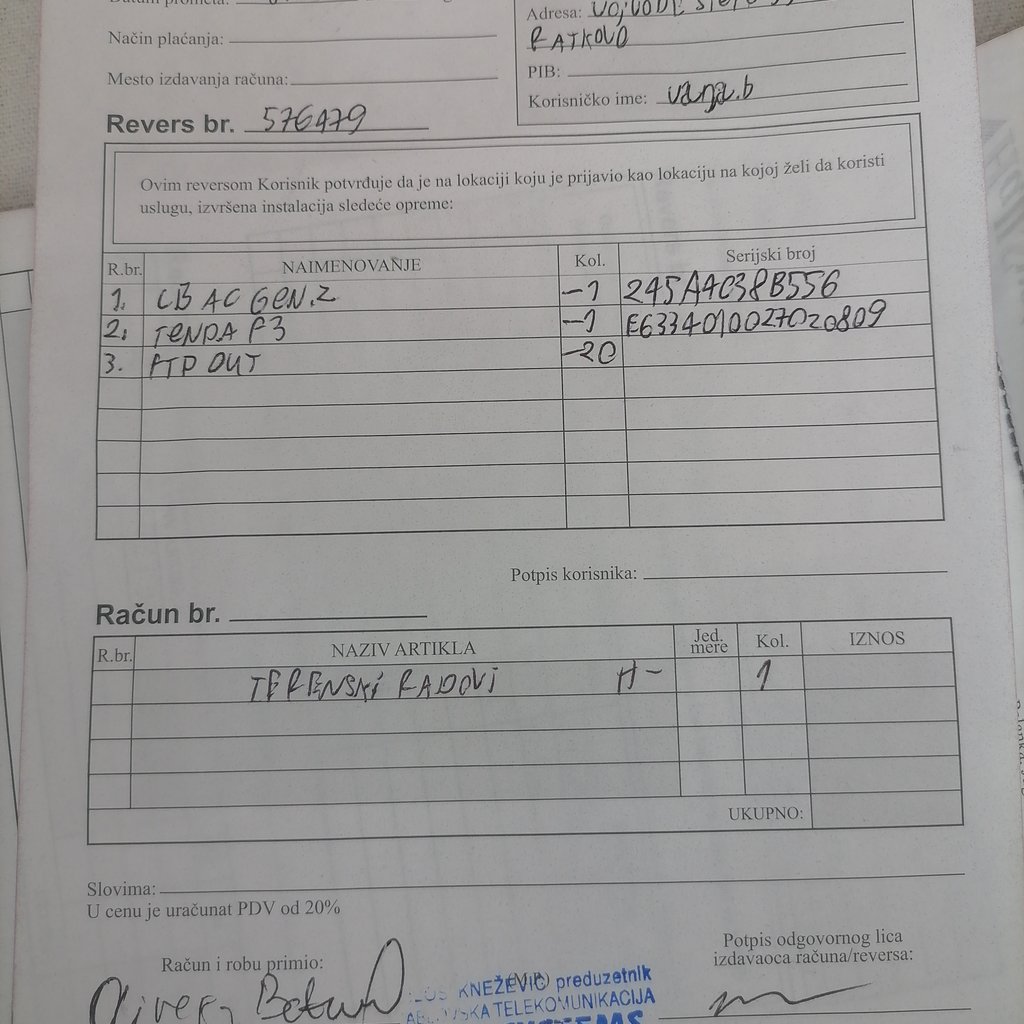 Datum prometa:
Adresa:
Način plaćanja:
RATKOVO
Mesto izdavanja računa:
PIB:
Korisničko ime: vanja.b
Revers br. 576479
Ovim reversom Korisnik potvrđuje da je na lokaciji koju je prijavio kao lokaciju na kojoj želi da koristi
uslugu, izvršena instalacija sledeće opreme:
R.br. NAIMENOVANJE Kol. Serijski broj
1. LB AC GEN.2 -1 245A4C38B556
2. TENDA F3 -1 E6334010027020809
3. FTP OUT -20
Potpis korisnika:
Račun br.
R.br. NAZIV ARTIKLA Jed. mere Kol. IZNOS
TERENSKI RADOVI H- 1
UKUPNO:
Slovima:
U cenu je uračunat PDV od 20%
Potpis odgovornog lica
izdavaoca računa/reversa:
Račun i robu primio:
(M.P.)
KNEŽEVIĆ preduzetnik
TELEKOMUNIKACIJA